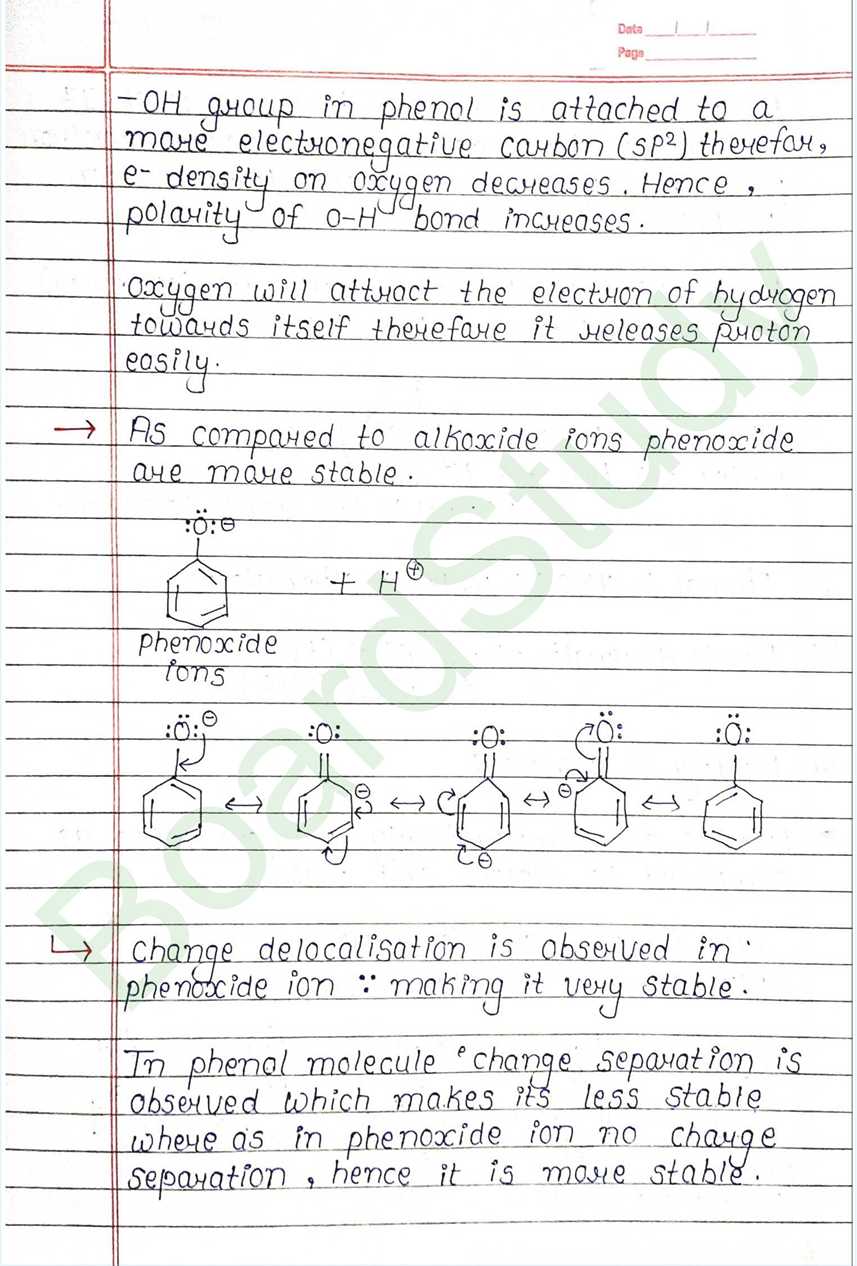 Date __/__/__
Page
-OH group in phenol is attached to a
more electronegative carbon (SP²) therefor,
e- density on oxygen decreases. Hence,
polarity of O-H bond increases.
Oxygen will attract the electron of hydrogen
towards itself therefore it releases proton
easily.
→ As compared to alkoxide ions phenoxide
are more stable.
:Ö:⊖
+ H⊕
phenoxide
ions
:Ö:⊖ :O: :O: :Ö: :Ö:
↔ ⊖ ↔ ↔ ⊖ ↔
⊖
↳ charge delocalisation is observed in
phenoxide ion ∵ making it very stable.
In phenol molecule e charge separation is
observed which makes its less stable
where as in phenoxide ion no charge
separation, hence it is more stable.
BoardStudy